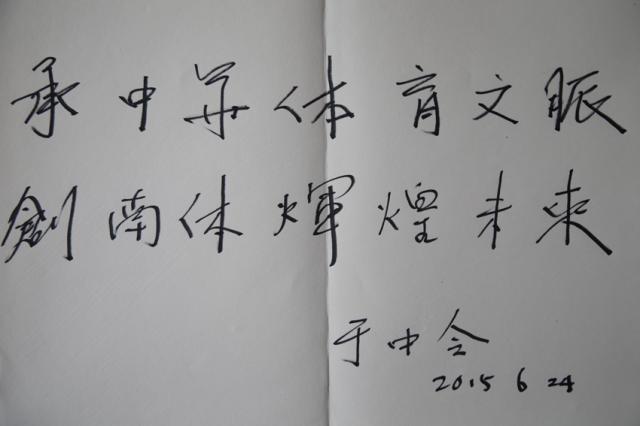 承中华体育文脈
創南体輝煌未來
于中会
2015 6 24